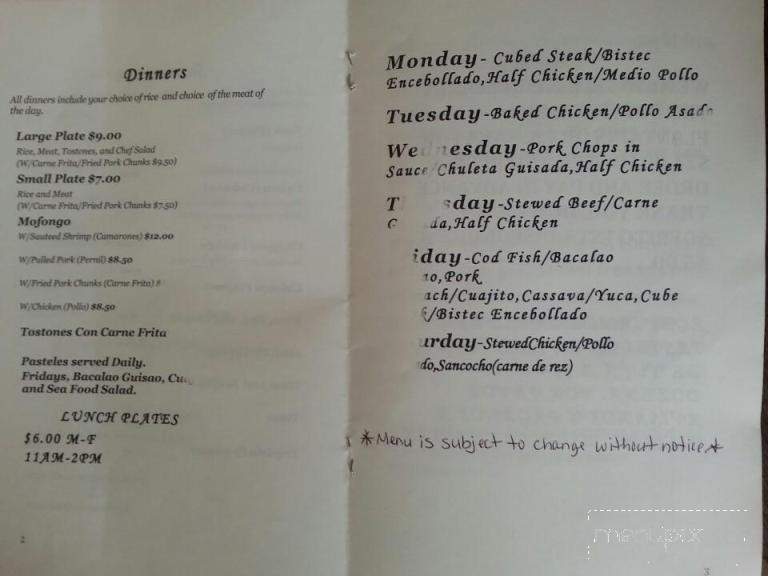 Dinners
All dinners include your choice of rice and choice of the meat of
the day.
Large Plate $9.00
Rice, Meat, Tostones, and Chef Salad
(W/Carne Frita/Fried Pork Chunks $9.50)
Small Plate $7.00
Rice and Meat
(W/Carne Frita/Fried Pork Chunks $7.50)
Mofongo
W/Sauteed Shrimp (Camarones) $12.00
W/Pulled Pork (Pernil) $8.50
W/Fried Pork Chunks (Carne Frita)
W/Chicken (Pollo) $8.50
Tostones Con Carne Frita
Pasteles served Daily.
Fridays, Bacalao Guisao,
and Sea Food Salad.
LUNCH PLATES
$6.00 M-F
11AM-2PM
2
Monday- Cubed Steak/Bistec
Encebollado,Half Chicken/Medio Pollo
Tuesday-Baked Chicken/Pollo Asado
Wednesday-Pork Chops in
Sauce/Chuleta Guisada,Half Chicken
T sday-Stewed Beef/Carne
G da,Half Chicken
iday-Cod Fish/Bacalao
o,Pork
ach/Cuajito,Cassava/Yuca,Cube
k/Bistec Encebollado
urday-StewedChicken/Pollo
do,Sancocho(carne de rez)
*Menu is subject to change without notice*
3
menupix